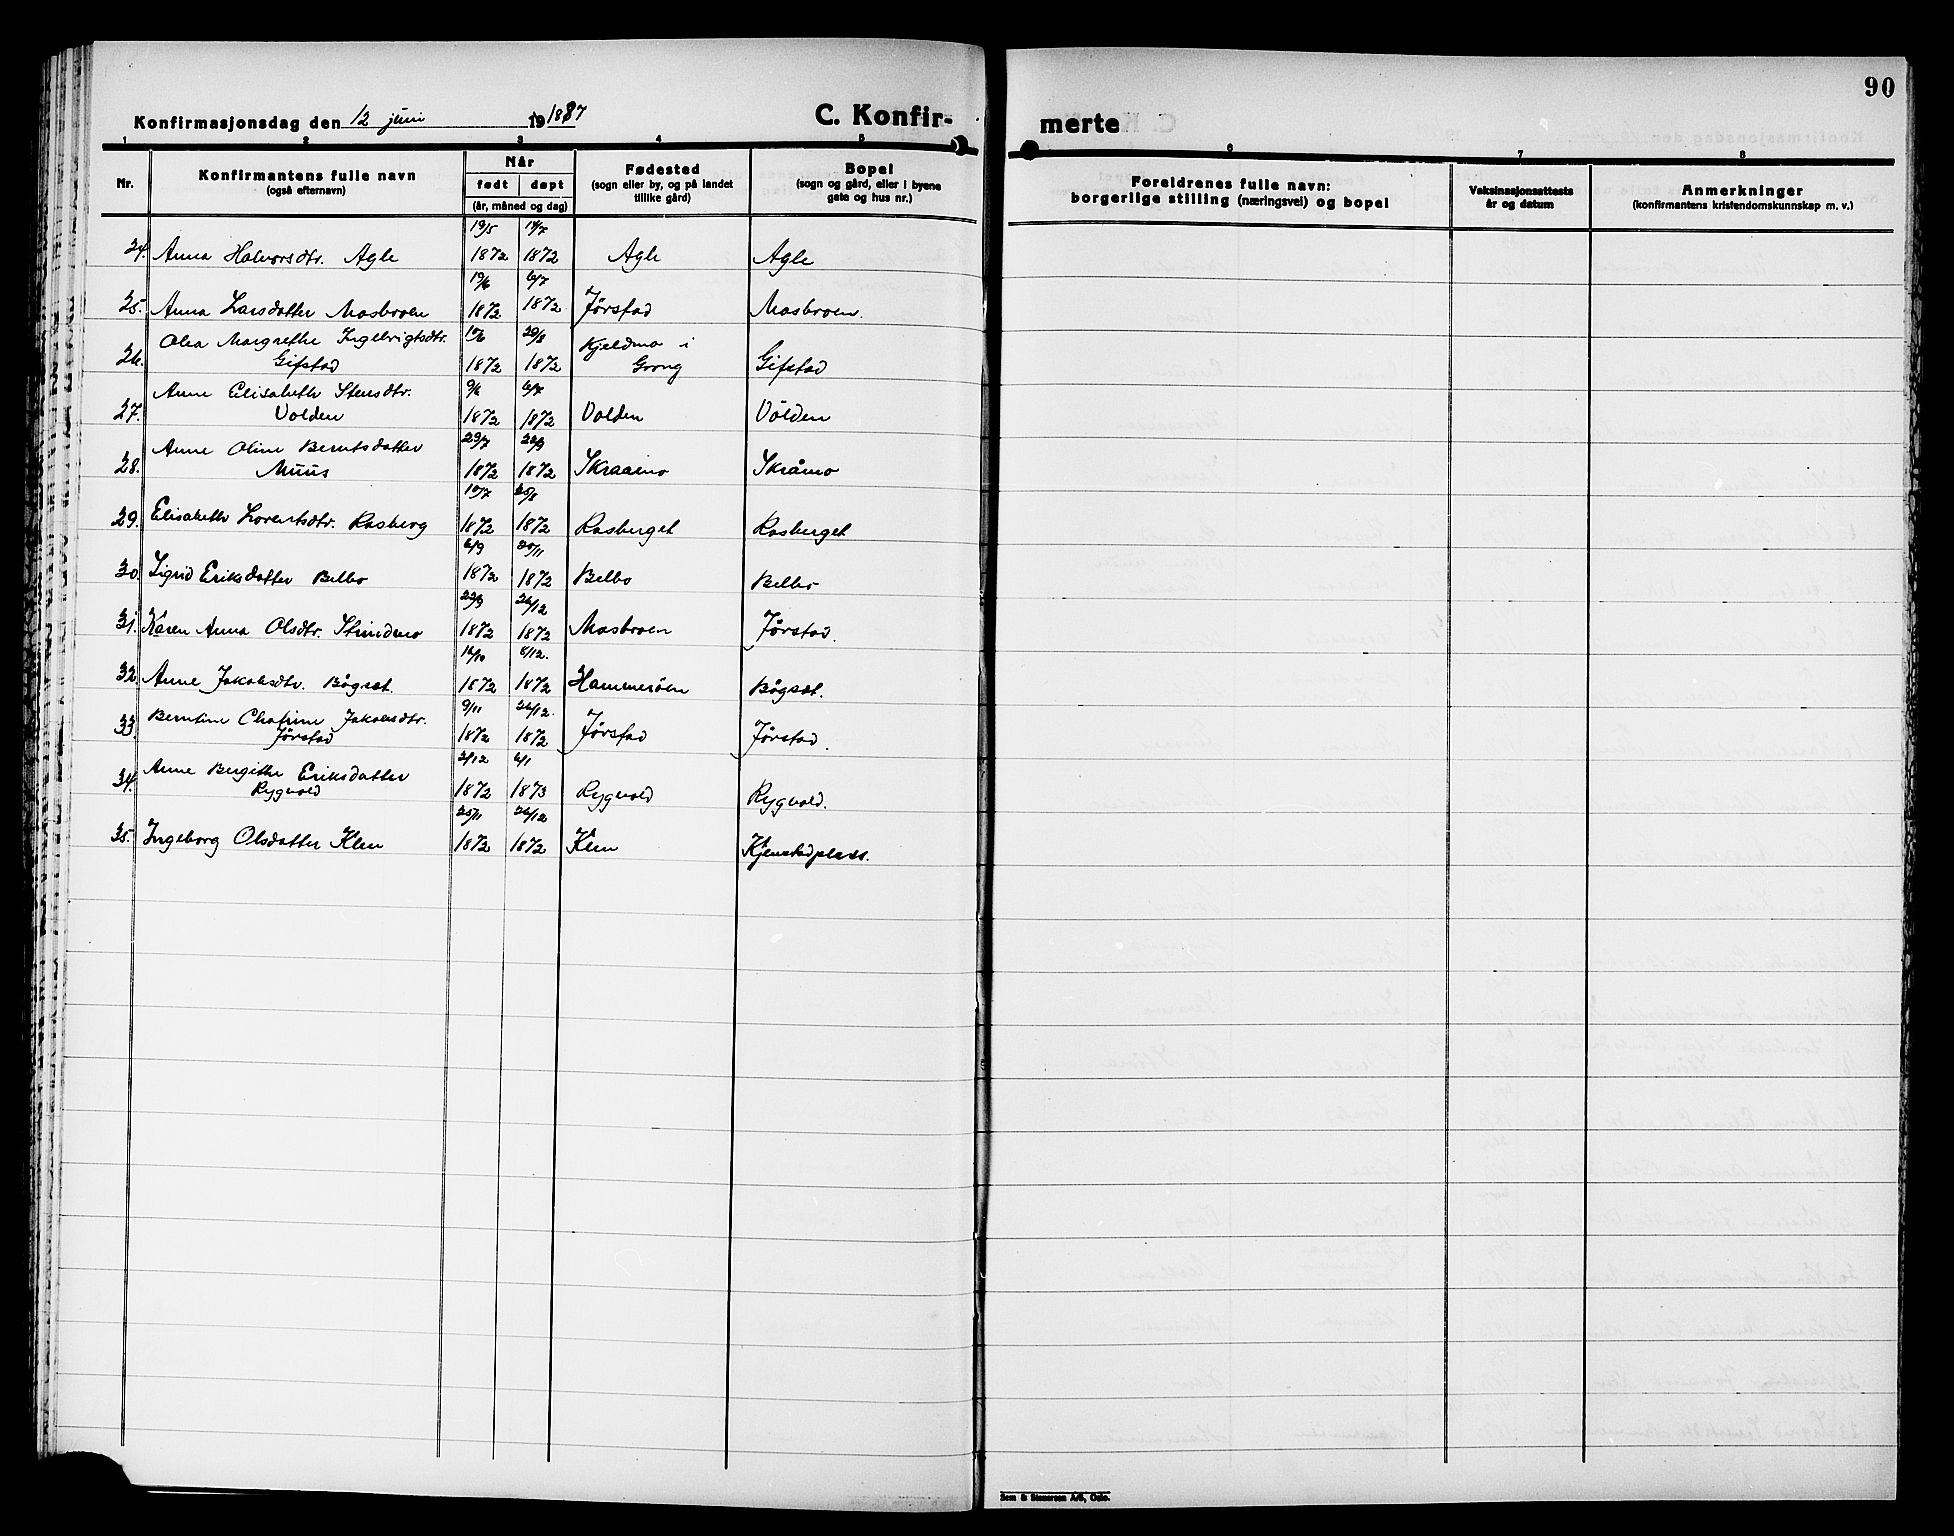 90
Konfirmasjonsdag den 12 juni 1887
C. Konfir-
merte
1 2 3 4 5
6 7 8
Nr.
Konfirmantens fulle navn
(også efternavn)
Når
født døpt
(år, måned og dag)
Fødested
(sogn eller by, og på landet
tillike gård)
Bopel
(sogn og gård, eller i byene
gate og hus nr.)
Foreldrenes fulle navn:
borgerlige stilling (næringsvei) og bopel
Vaksinasjonsattests
år og datum
Anmerkninger
(konfirmantens kristendomskunnskap m. v.)
19/5 14/7
24. Anna Halvorsdtr. Agle 1872 1872 Agle Agle
19/6 6/7
25. Anna Larsdatter Mosbroen 1872 1872 Jørstad Mosbroen.
Olea Margrethe Ingebrigtsdtr. 10/6 20/8 Kjeldmo i
26. Gifstad 1872 1872 Grong Gifstad
Anne Elisabeth Stensdtr. 9/6 6/7
27. Volden 1872 1872 Volden Volden
Anne Oline Berntsdatter 23/7 22/9
28. Muus 1872 1872 Skraamo Skråmo
19/7 25/8
29. Elisabeth Lorentsdtr. Rosberg 1872 1872 Rosberget Rosberget
6/9 20/11
30. Sigrid Eriksdatter Belbo 1872 1872 Belbo Belbo
22/9 26/12
31. Karen Anna Olsdtr. Strindmo 1872 1872 Mosbroen Jørstad.
16/10 8/12.
32. Anne Jakobsdtr. Bøgset. 1872 1872 Hammerøen Bøgset.
Berntine Chatrine Jakobsdtr. 9/11 26/12.
33. Jørstad 1872 1872 Jørstad Jørstad.
Anne Bergithe Eriksdatter 2/12 6/1
34. Rygvold 1872 1873 Rygvold Rygvold.
25/11 26/12
35. Ingeborg Olsdatter Klen 1872 1872 Klen Kjenstadplads.
Sem & Stenersen A/S, Oslo.